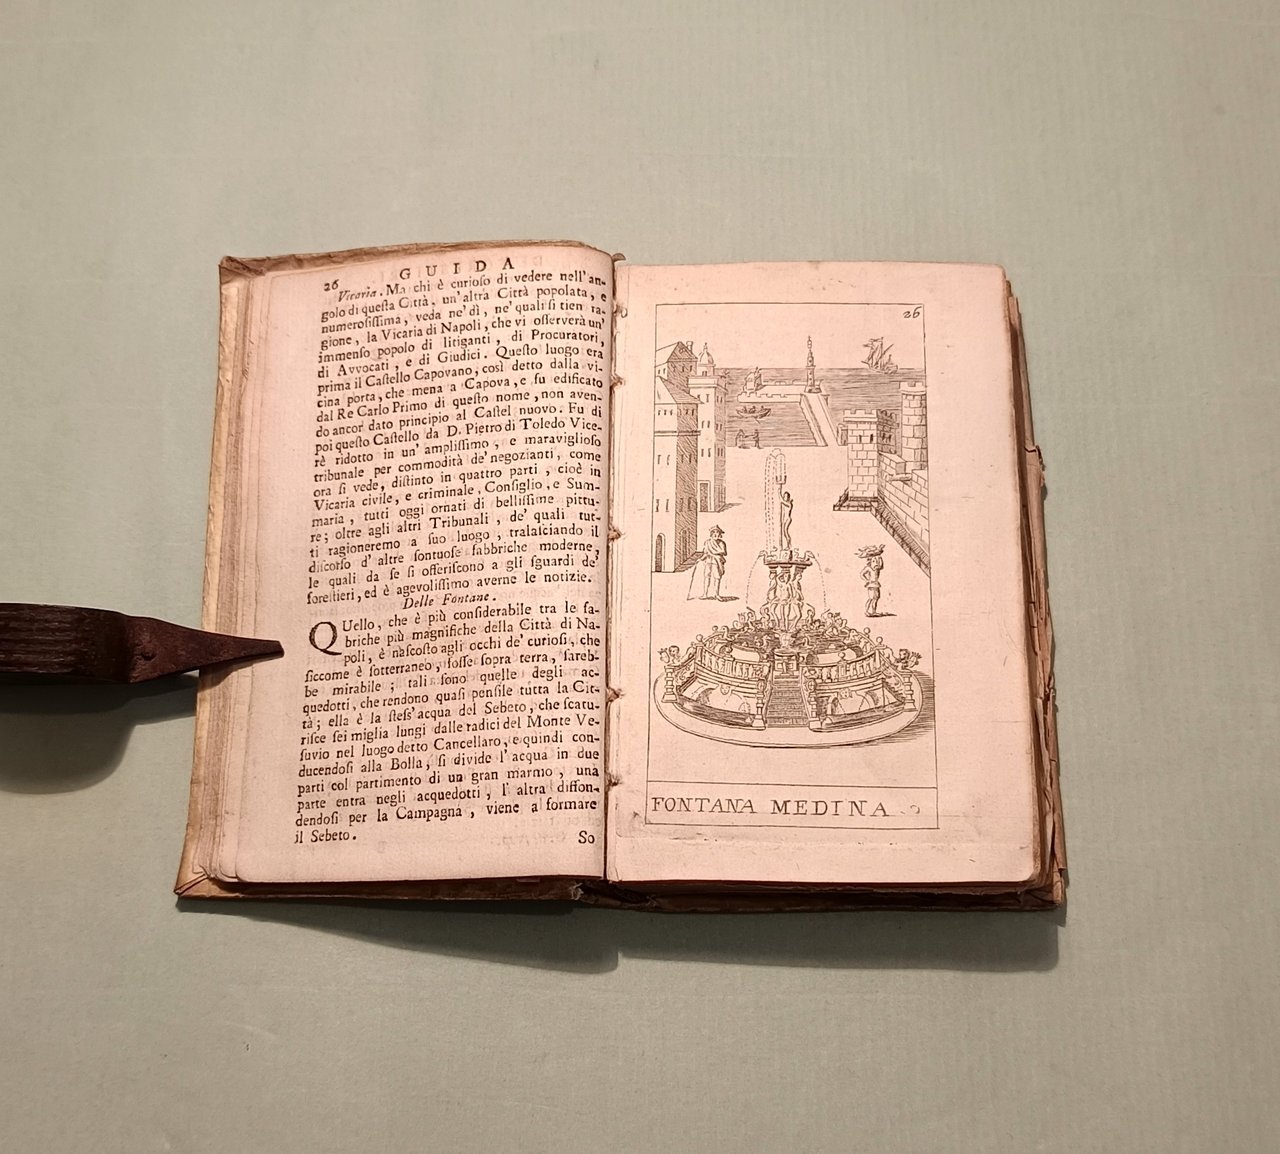 26
GUIDA
Vicaria. Ma chi è curioſo di vedere nell'an-
golo di queſta Città, un'altra Città popolata, e
numeroſiſſima, veda ne' dì, ne' quali ſi tien ra-
gione, la Vicaria di Napoli, che vi oſſerverà un'
immenſo popolo di litiganti, di Procuratori,
di Avvocati, e di Giudici. Queſto luogo era
prima il Caſtello Capovano, così detto dalla vi-
cina porta, che mena a Capova, e fu edificato
dal Re Carlo Primo di queſto nome, non aven-
do ancor dato principio al Caſtel nuovo. Fu di
poi queſto Caſtello da D. Pietro di Toledo Vice-
rè ridotto in un' ampliſſimo, e maraviglioſo
tribunale per commodità de' negozianti, come
ora ſi vede, diſtinto in quattro parti, cioè in
Vicaria civile, e criminale, Conſiglio, e Sum-
maria, tutti oggi ornati di belliſſime pittu-
re; oltre agli altri Tribunali, de' quali tut-
ti ragioneremo a ſuo luogo, tralaſciando il
diſcorſo d' altre ſontuoſe fabbriche moderne,
le quali da ſe ſi offeriſcono a gli ſguardi de'
foreſtieri, ed è agevoliſſimo averne le notizie.
Delle Fontane.
QUello, che è più conſiderabile tra le fa-
briche più magnifiche della Città di Na-
poli, è naſcoſto agli occhi de' curioſi, che
ſiccome è ſotterraneo, foſſe ſopra terra, ſareb-
be mirabile; tali ſono quelle degli ac-
quedotti, che rendono quaſi penſile tutta la Cit-
tà; ella è la ſteſs' acqua del Sebeto, che ſcatu-
riſce ſei miglia lungi dalle radici del Monte Ve-
ſuvio nel luogo detto Cancellaro, e quindi con-
ducendoſi alla Bolla, ſi divide l' acqua in due
parti col partimento di un gran marmo, una
parte entra negli acquedotti, l' altra diffon-
dendoſi per la Campagna, viene a formare
il Sebeto.
So
26
FONTANA MEDINA